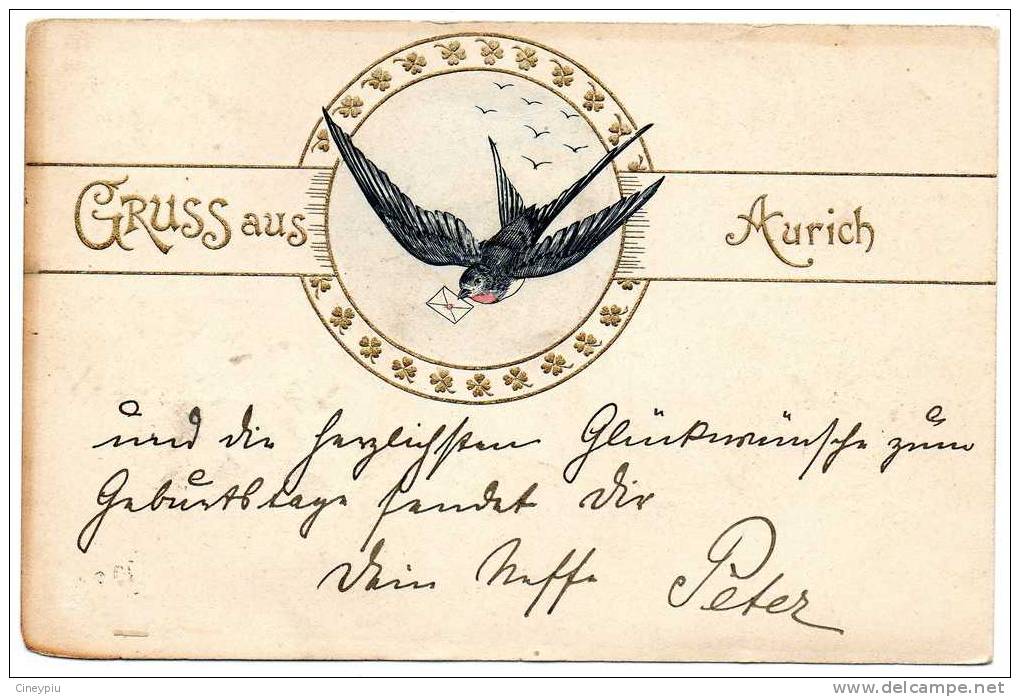 GRUSS aus Aurich
und die herzlichsten Glückwünsche zum
Geburtstage sendet Dir
Dein Neffe Peter
Cineypiu
www.delcampe.net